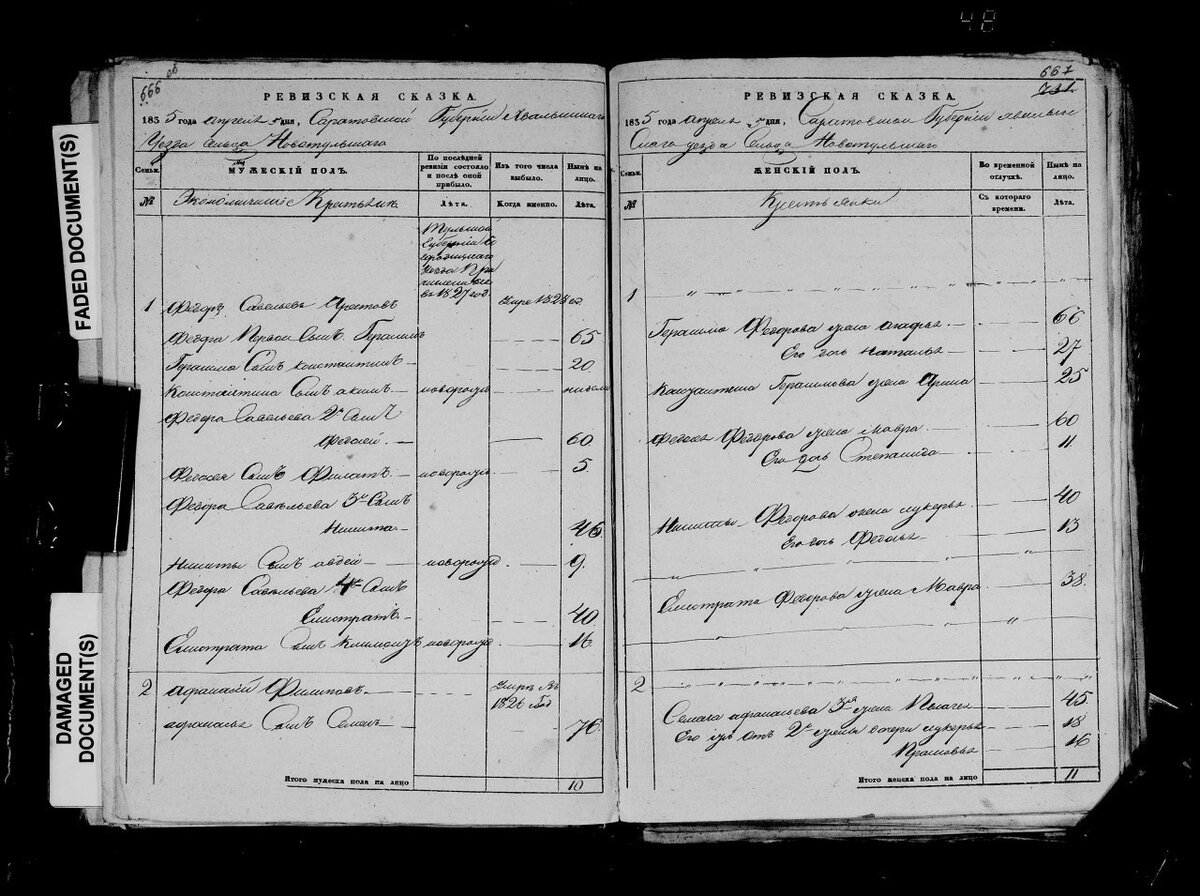 48
FADED DOCUMENT(S)
DAMAGED DOCUMENT(S)
666 об
РЕВИЗСКАЯ СКАЗКА.
1835 года апреля 5 дня, Саратовской Губернiи Хвалынскаго
Уезда Сельца Новотульскаго
Семьи.
МУЖЕСКIЙ ПОЛЪ.
По послѣдней ревизiи состояло и послѣ оной прибыло.
Изъ того числа выбыло.
Нынѣ на лицо.
№
Экономическiе Крестьяне
Лѣта.
Когда именно.
Лѣта.
Тульской
Губернiи
Уезда
въ 1827 год.
1 Федоръ Савельевъ умре 1828 го.
Федора Первой Сынъ Герасимъ 65
Герасима Сынъ константинъ 20
Константина Сынъ акимъ новорожд недели
Федора Савельева 2й Сынъ
Федосей. 60
Федосея Сынъ Филатъ новорожд. 5
Федора Савельева 3й Сынъ
Никита 46
Никиты Сынъ авдей новорожд 9.
Федора Савельева 4й Сынъ
Елистратъ. 40
Елистрата Сынъ новорожд. 16.
2 афанасiй Филиповъ. умре въ
1826 Год
афанасья Сынъ Семенъ 76.
Итого мужеска пола на лицо 10
667
731
РЕВИЗСКАЯ СКАЗКА.
1835 года апреля 5 дня, Саратовской Губернiи Хвалын
скаго уезда Сельца Новотульскаго
Семьи.
ЖЕНСКIЙ ПОЛЪ.
Во временной отлучкѣ.
Нынѣ на лицо.
№
Крестьянки
Съ котораго времени.
Лѣта.
1
Герасима Федорова жена агафья 66
Его дочь Наталья 27
Константина Герасимова жена Арина 25
Федосея Федорова жена Мавра 60
Его дочь Степанида 11
Никиты Федорова жена лукерья 40
Его дочь Федосья 13
Елистрата Федорова жена Мавра 38.
2
Семена афанасьева 3я жена 45.
Его жъ отъ 2й жены дочери лукерья 18
Прасковья 16
Итого женска пола на лицо 11